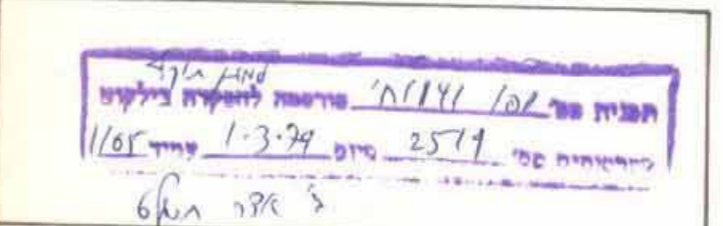 למתן תוקף
תכנית מס' פורסמה להפקדה בילקוט
הפרסומים מס' 2519 מיום 1.3.79 עמוד 1165
ב' אדר תשל"ט